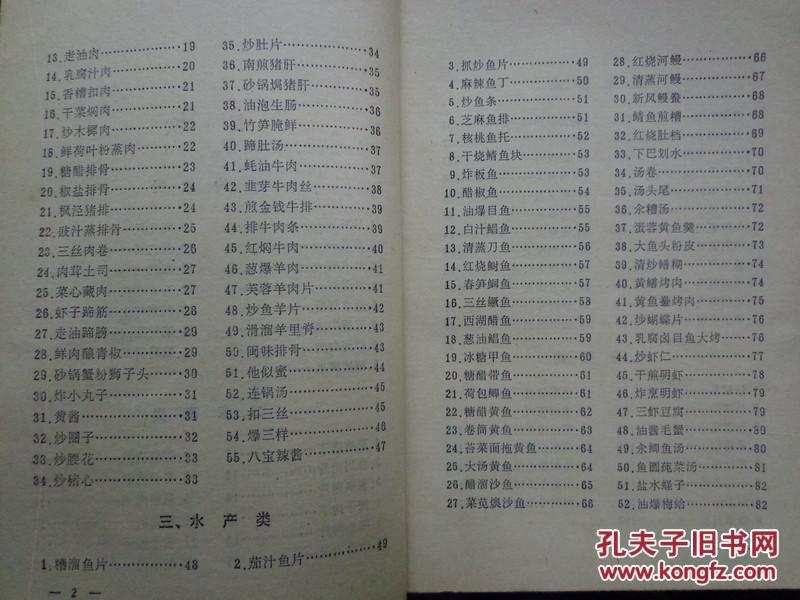 13.走油肉……………………19
14.乳腐汁肉…………………20
15.香糟扣肉…………………21
16.干菜焖肉…………………21
17.炒木樨肉…………………22
18.鲜荷叶粉蒸肉……………22
19.糖醋排骨…………………23
20.椒盐排骨…………………24
21.枫泾猪排…………………24
22.豉汁蒸排骨………………25
23.三丝肉卷…………………26
24.肉茸土司…………………27
25.菜心藏肉…………………27
26.虾子蹄筋…………………28
27.走油蹄膀…………………29
28.鲜肉酿青椒………………29
29.砂锅蟹粉狮子头…………30
30.炸小丸子…………………31
31.黄酱………………………31
32.炒圈子……………………32
33.炒腰花……………………33
34.炒猪心……………………33
35.炒肚片……………………34
36.南煎猪肝…………………35
37.砂锅焗猪肝………………35
38.油泡生肠…………………36
39.竹笋腌鲜…………………36
40.蹄肚汤……………………37
41.蚝油牛肉…………………37
42.韭芽牛肉丝………………38
43.煎金钱牛排………………39
44.排牛肉条…………………39
45.红焖牛肉…………………40
46.葱爆羊肉…………………41
47.芙蓉羊肉片………………41
48.炒鱼羊片…………………42
49.滑溜羊里脊………………43
50.闽味排骨…………………43
51.他似蜜……………………44
52.连锅汤……………………45
53.扣三丝……………………45
54.爆三样……………………46
55.八宝辣酱…………………47
三、水产类
1.糟溜鱼片…………………48
2.茄汁鱼片…………………49
— 2 —
3.抓炒鱼片…………………49
4.麻辣鱼丁…………………50
5.炒鱼条……………………51
6.芝麻鱼排…………………51
7.核桃鱼托…………………52
8.干烧鲭鱼块………………53
9.炸板鱼……………………53
10.醋椒鱼……………………54
11.油爆目鱼…………………55
12.白汁鲳鱼…………………55
13.清蒸刀鱼…………………56
14.红烧鲥鱼…………………57
15.春笋鮰鱼…………………57
16.三丝鳜鱼…………………58
17.西湖醋鱼…………………59
18.葱油鲳鱼…………………59
19.冰糖甲鱼…………………60
20.糖醋带鱼…………………61
21.荷包鲫鱼…………………61
22.糖醋黄鱼…………………62
23.卷筒黄鱼…………………63
24.苔菜面拖黄鱼……………64
25.大汤黄鱼…………………64
26.醋溜沙鱼…………………65
27.菜苋熯沙鱼………………66
28.红烧河鳗…………………66
29.清蒸河鳗…………………67
30.新风鳗鲞…………………68
31.鲭鱼煎糟…………………68
32.红烧肚档…………………69
33.下巴划水…………………70
34.汤卷………………………70
35.汤头尾……………………71
36.氽糟汤……………………72
37.蛋蓉黄鱼羹………………72
38.大鱼头粉皮………………73
39.清炒鳝糊…………………74
40.黄鳝烤肉…………………74
41.黄鱼鲞烤肉………………75
42.炒蝴蝶片…………………76
43.乳腐卤目鱼大烤…………76
44.炒虾仁……………………77
45.干煎明虾…………………78
46.炸烹明虾…………………79
47.三虾豆腐…………………79
48.油酱毛蟹…………………79
49.氽鲫鱼汤…………………80
50.鱼圆莼菜汤………………81
51.盐水蛏子…………………82
52.油爆梅蛤…………………82
孔夫子旧书网
www.kongfz.com